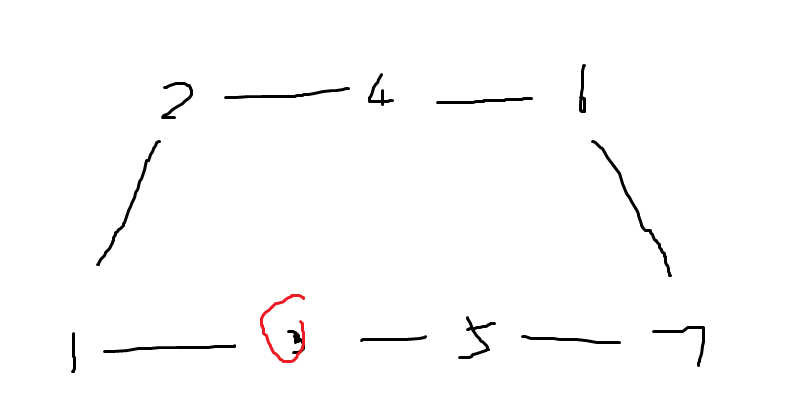 2 4 6
1 3 5 7